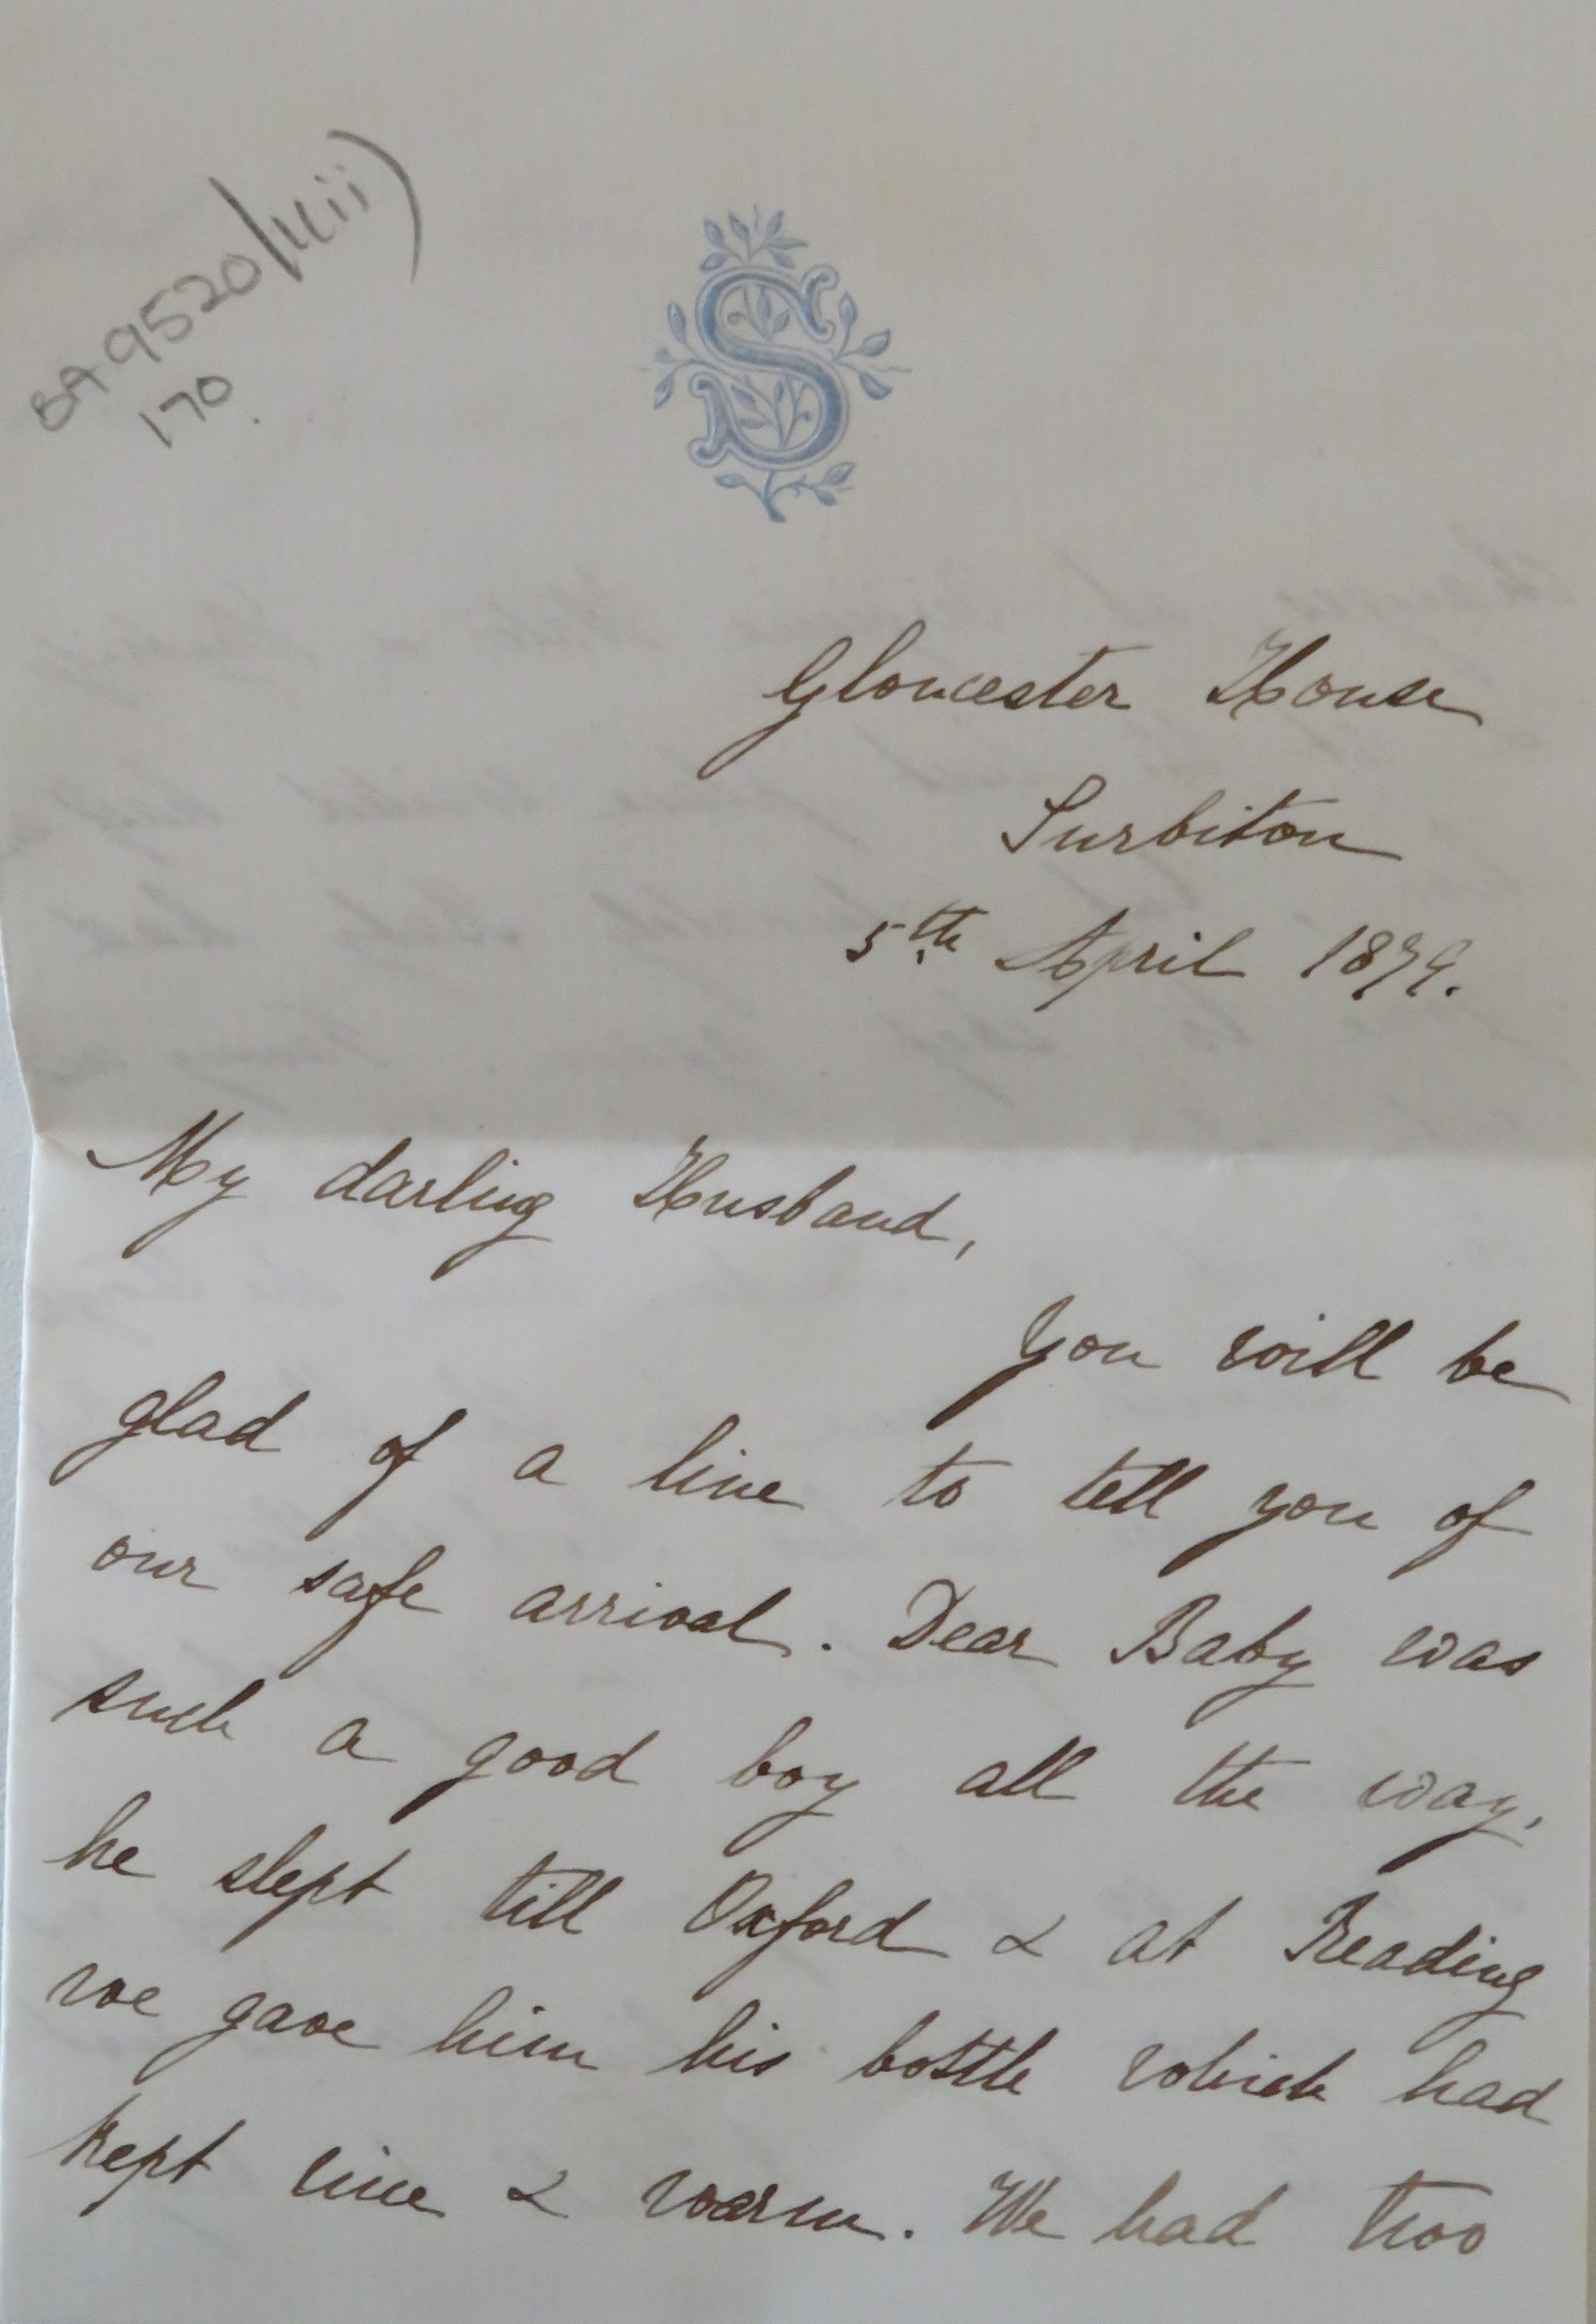 BA 9520/11(ii)
170.
S
Gloucester House
Surbiton
5th April 1879.
My darling Husband,
You will be
glad of a line to tell you of
our safe arrival. Dear Baby was
such a good boy all the way,
he slept till Oxford & at Reading
we gave him his bottle which had
kept nice & warm. We had two